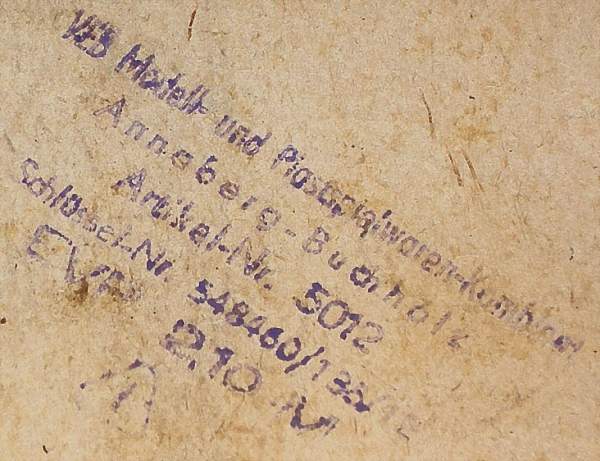 VEB Modell- und Plastspielwaren-Kombinat
Annaberg-Buchholz
Artikel-Nr. 5012
Schlüssel-Nr. 548460/135/12
EVP 2.10 M